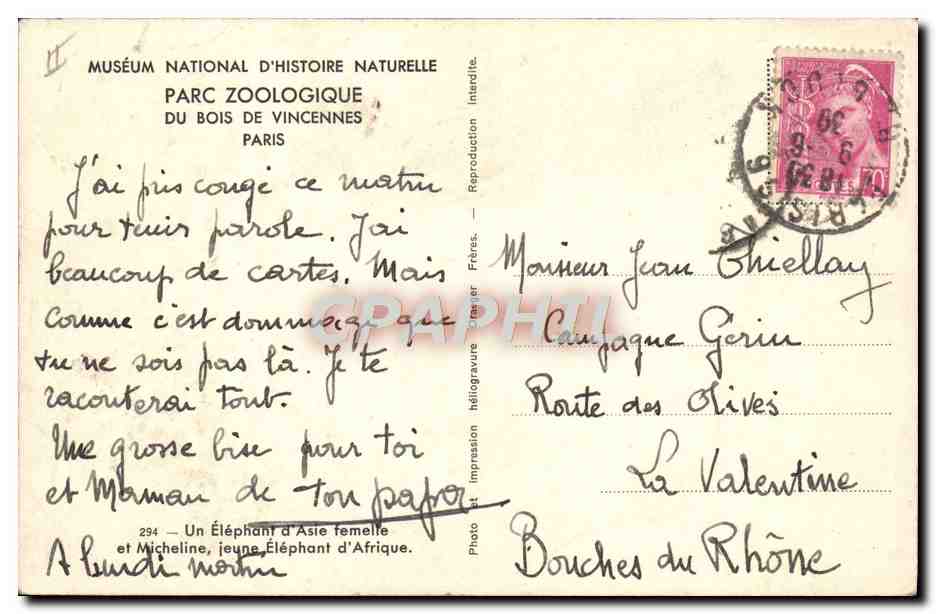 II
MUSÉUM NATIONAL D'HISTOIRE NATURELLE
PARC ZOOLOGIQUE
DU BOIS DE VINCENNES
PARIS
J'ai pris congé ce matin
pour tenir parole. J'ai
beaucoup de cartes. Mais
comme c'est dommage que
tu ne sois pas là. Je te
raconterai tout.
Une grosse bise pour toi
et Maman de ton papa
294 — Un Éléphant d'Asie femelle
et Micheline, jeune Éléphant d'Afrique.
A lundi matin
Photo et impression héliogravure Braeger Frères. — Reproduction Interdite.
CPAPHIL
PARIS
18 30
9 - 6
39
70
Monsieur Jean Thiellay
Campagne Gérin
Route des Olives
La Valentine
Bouches du Rhône